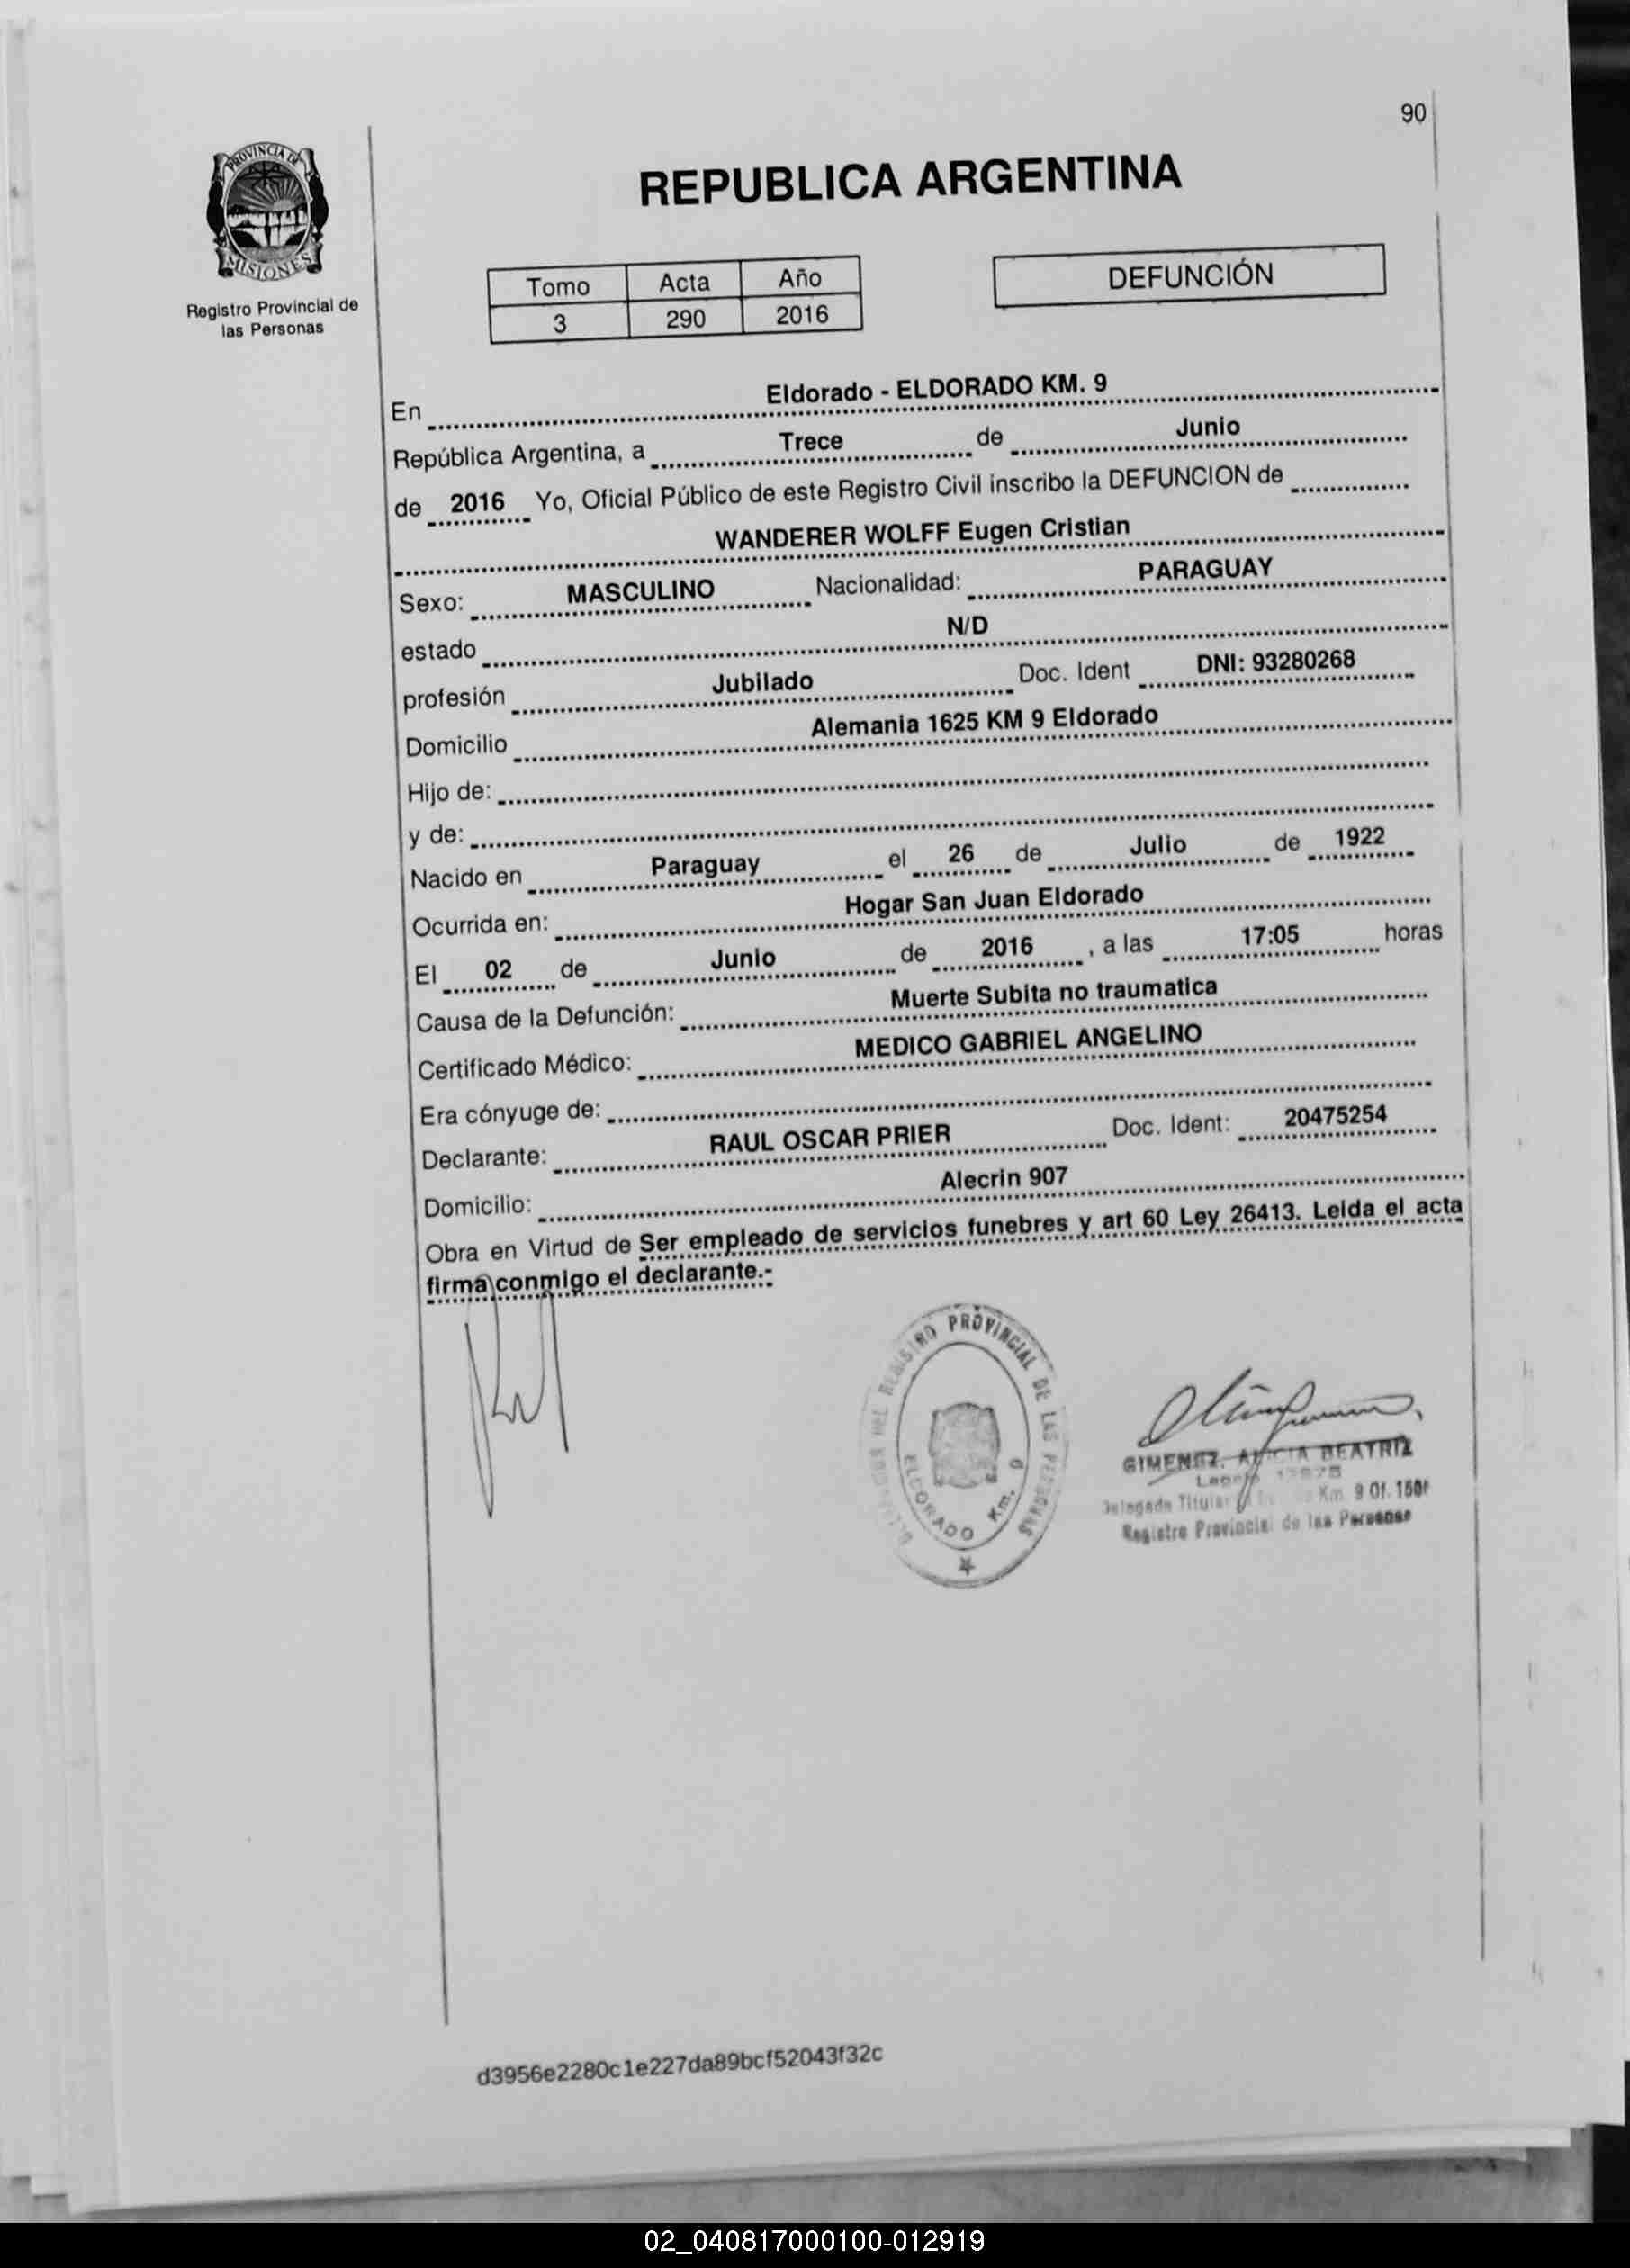 90
PROVINCIA DE
MISIONES
Registro Provincial de
las Personas
REPUBLICA ARGENTINA
Tomo Acta Año
3 290 2016
DEFUNCIÓN
En Eldorado - ELDORADO KM. 9
República Argentina, a Trece de Junio
de 2016 Yo, Oficial Público de este Registro Civil inscribo la DEFUNCION de
WANDERER WOLFF Eugen Cristian
Sexo: MASCULINO Nacionalidad: PARAGUAY
estado N/D
profesión Jubilado Doc. Ident DNI: 93280268
Domicilio Alemania 1625 KM 9 Eldorado
Hijo de:
y de:
Nacido en Paraguay el 26 de Julio de 1922
Ocurrida en: Hogar San Juan Eldorado
El 02 de Junio de 2016, a las 17:05 horas
Causa de la Defunción: Muerte Subita no traumatica
Certificado Médico: MEDICO GABRIEL ANGELINO
Era cónyuge de:
Declarante: RAUL OSCAR PRIER Doc. Ident: 20475254
Domicilio: Alecrin 907
Obra en Virtud de Ser empleado de servicios funebres y art 60 Ley 26413. Leida el acta
firma conmigo el declarante.-
REGISTRO PROVINCIAL DE LAS PERSONAS
ELDORADO Km. 9
GIMENEZ, ALICIA BEATRIZ
Titular Km. 9 Of.
Registro Provincial de las Personas
d3956e2280c1e227da89bcf52043f32c
02_040817000100-012919